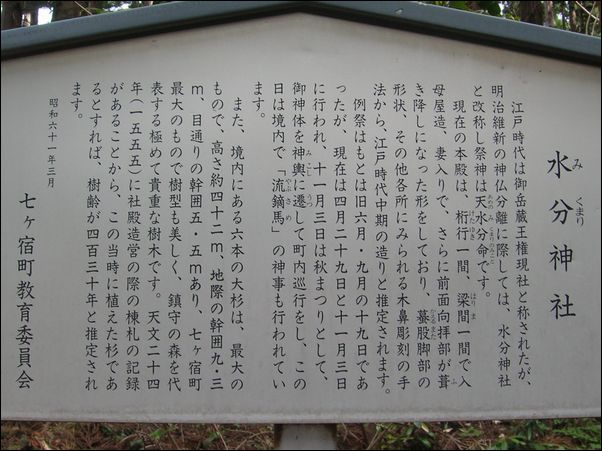 水分神社
みくまり
江戸時代は御岳蔵王権現社と称されたが、
明治維新の神仏分離に際しては、水分神社
と改称し祭神は天水分命です。
あめのみくまりのみこと
現在の本殿は、桁行一間、梁間一間で入
けたゆき
はりま
母屋造、妻入りで、さらに前面向拝部が葺
ふ
き降しになった形をしており、蟇股脚部の
かえるまた
形状、その他各所にみられる木鼻彫刻の手
法から、江戸時代中期の造りと推定されます。
例祭はもとは旧六月・九月の十九日であ
ったが、現在は四月二十九日と十一月三日
に行われ、十一月三日は秋まつりとして、
御神体を神輿に遷して町内巡行をし、この
みこし
うつ
日は境内で「流鏑馬」の神事も行われてい
やぶさめ
ます。
また、境内にある六本の大杉は、最大の
もので、高さ約四十二m、地際の幹囲九・三
m、目通りの幹囲五・五mあり、七ヶ宿町
最大のもので樹型も美しく、鎮守の森を代
表する極めて貴重な樹木です。天文二十四
年(一五五五)に社殿造営の際の棟札の記録
があることから、この当時に植えた杉であ
るとすれば、樹齢が四百三十年と推定され
ます。
昭和六十一年三月
七ヶ宿町教育委員会